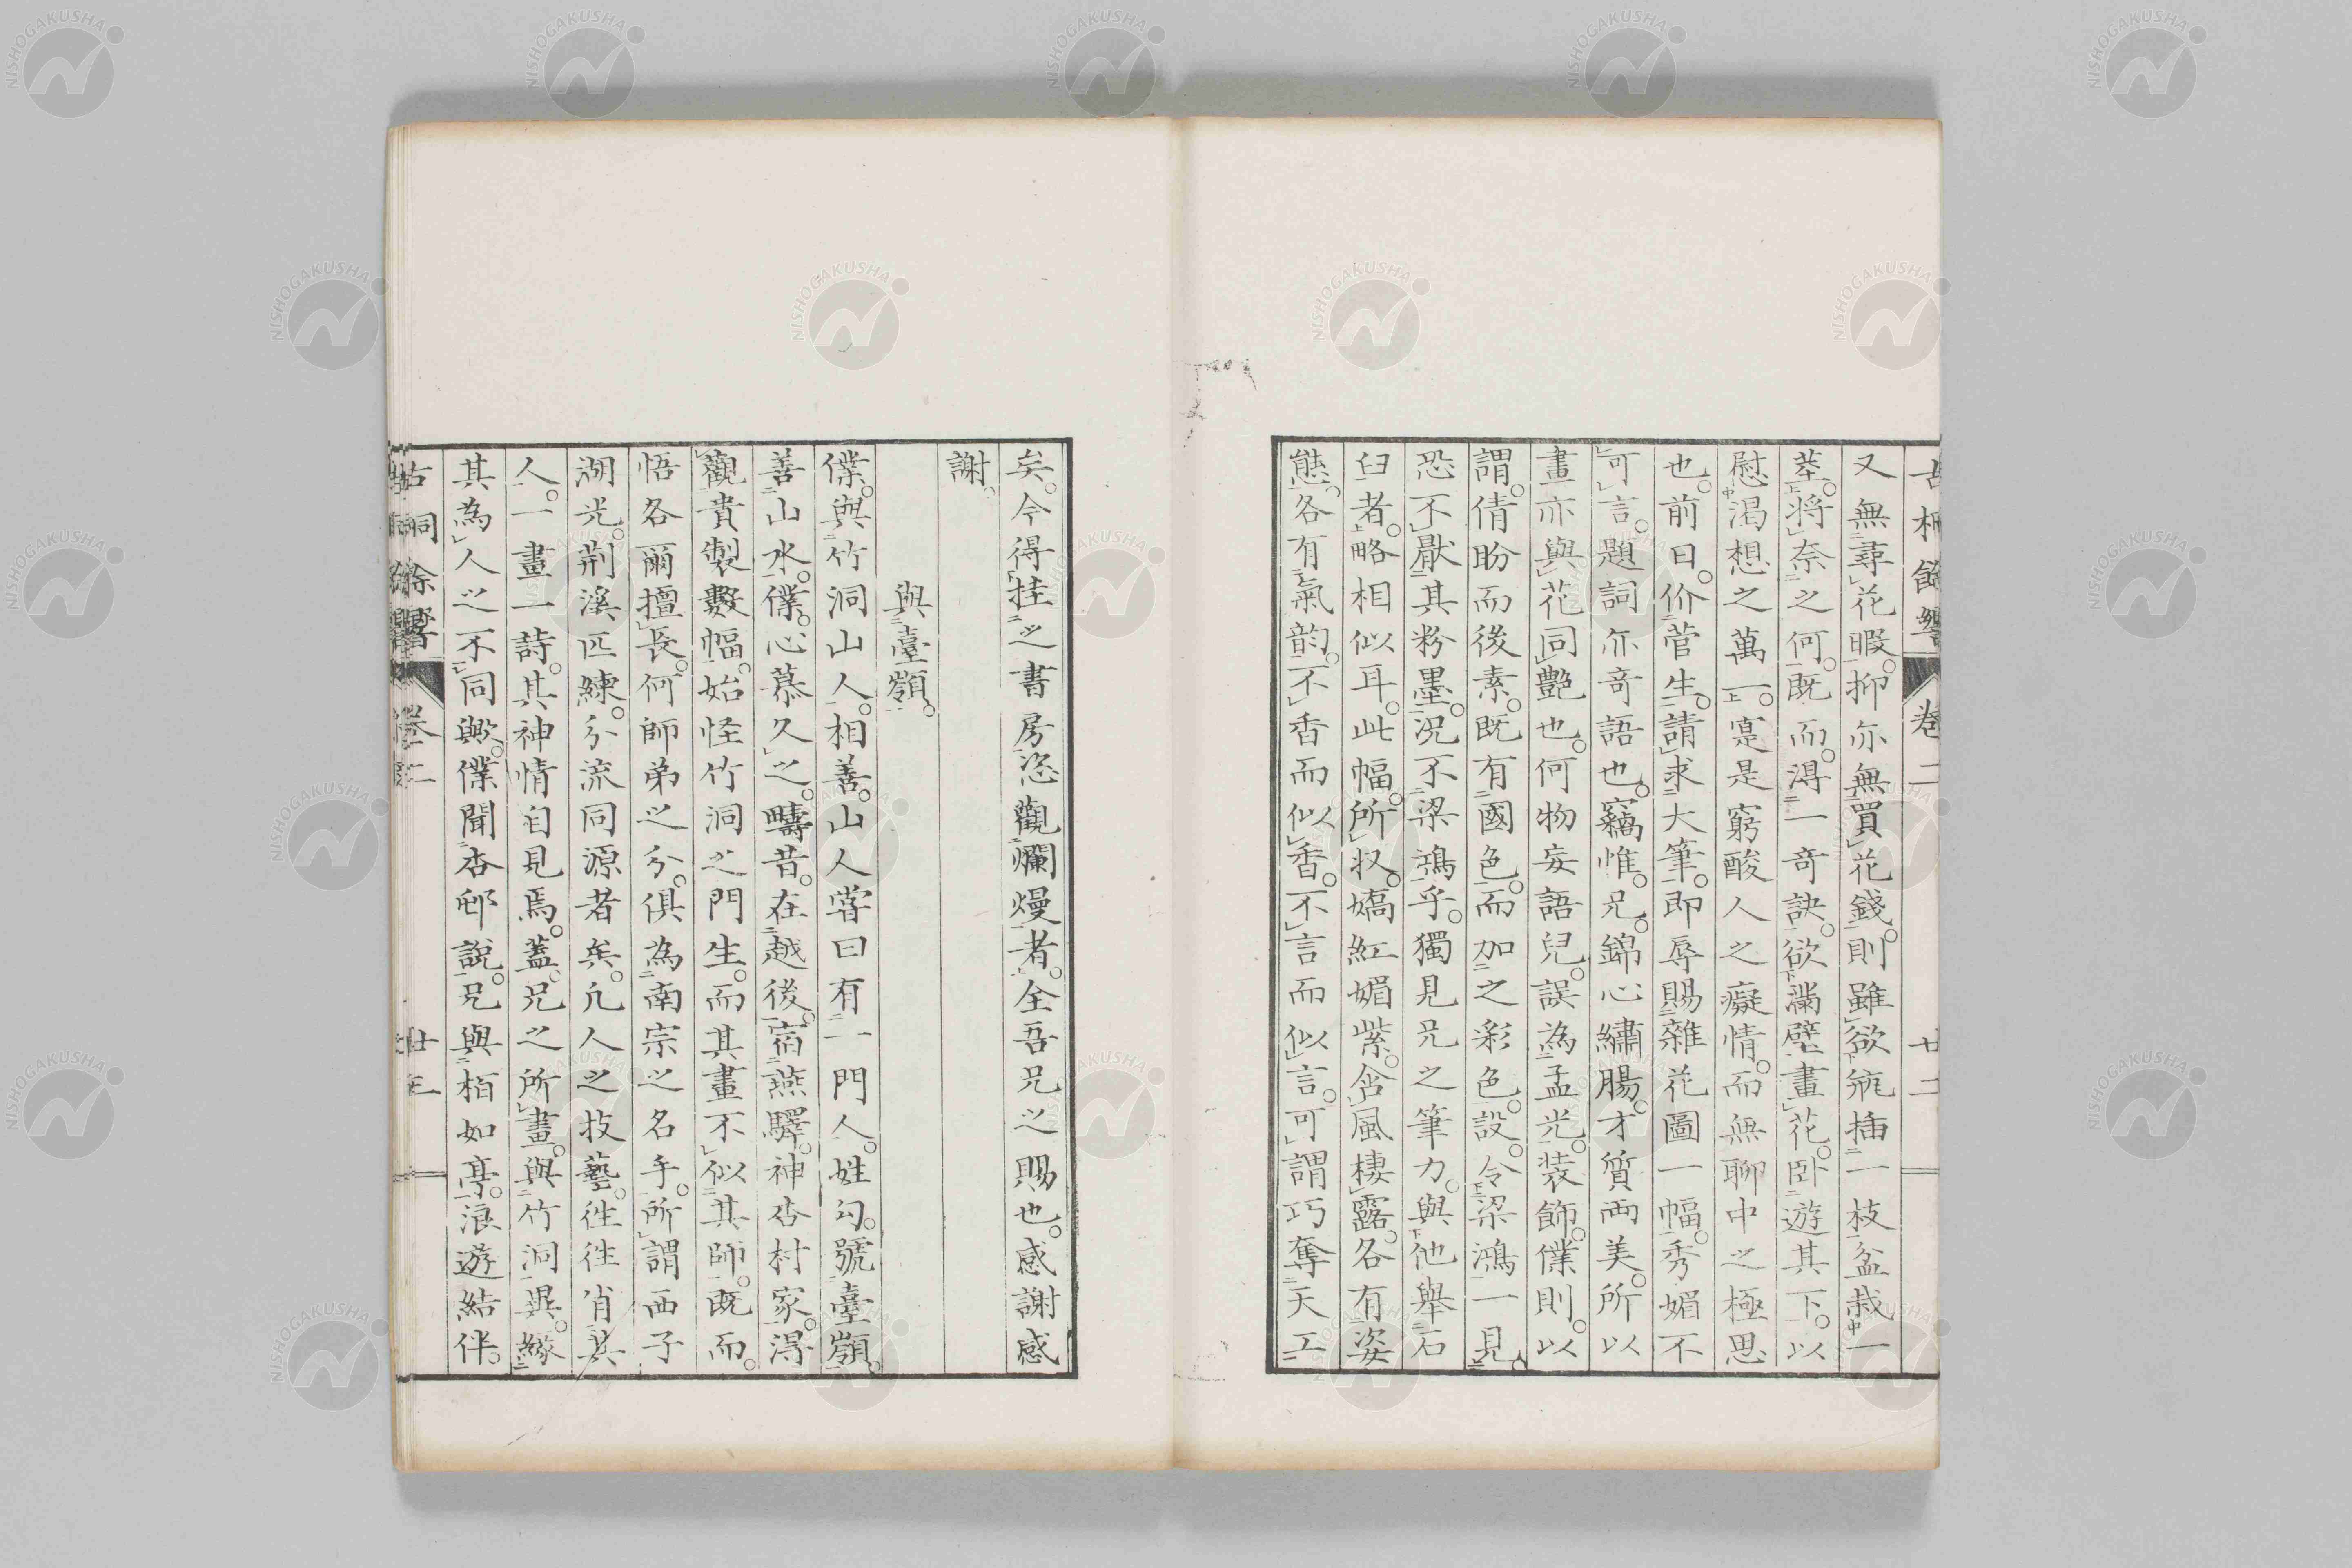 又無尋花暇。抑亦無買花錢。則雖欲瓶插一枝盆栽一
莖。將奈之何。既而。得一奇訣。欲滿壁畫花。臥遊其下。以
慰渴想之萬一。寔是窮酸人之癡情。而無聊中之極思
也。前日。价菅生。請求大筆。即辱賜雜花圖一幅。秀媚不
可言。題詞亦奇語也。竊惟。兄。錦心繡腸。才質兩美。所以
畫亦與花同艷也。何物妄語兒。誤為孟光裝飾。僕則。以
謂。倩盼而後素。既有國色。而加之彩色。設。令梁鴻一見。
恐不厭其粉墨。況不梁鴻乎。獨見兄之筆力。與他舉石
臼者。略相似耳。此幅。所収。嬌紅媚紫。含風棲露。各有姿
態。各有氣韵。不香而似香。不言而似言。可謂巧奪天工
矣。今得挂之書房恣觀爛熳者。全吾兄之賜也。感謝感
謝。
與臺嶺。
僕。與竹洞山人。相善。山人嘗曰有一門人。姓勾。號臺嶺。
善山水。僕。心慕久之。疇昔。在越後。宿燕驛。神杏村家。得
觀貴製數幅。始怪竹洞之門生。而其畫不似其師。既而。
悟各爾擅長。何師弟之分。俱為南宗之名手。所謂西子
湖光。荊溪匹練。分流同源者矣。凡人之技藝。往往肖其
人。一畫一詩。其神情自見焉。蓋。兄之所畫。與竹洞異。緣
其為人之不同歟。僕聞杏邨說。兄與栢如亭。浪遊結伴。
卷二
廿二
卷二